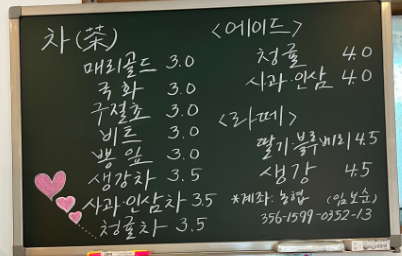 차(茶)
매리골드 3.0
국화 3.0
구절초 3.0
비트 3.0
뽕잎 3.0
생강차 3.5
사과·인삼차 3.5
청귤차 3.5
<에이드>
청귤 4.0
사과·인삼 4.0
<라떼>
딸기·블루베리 4.5
생강 4.5
*계좌: 농협 (임보순)
356-1599-0352-13